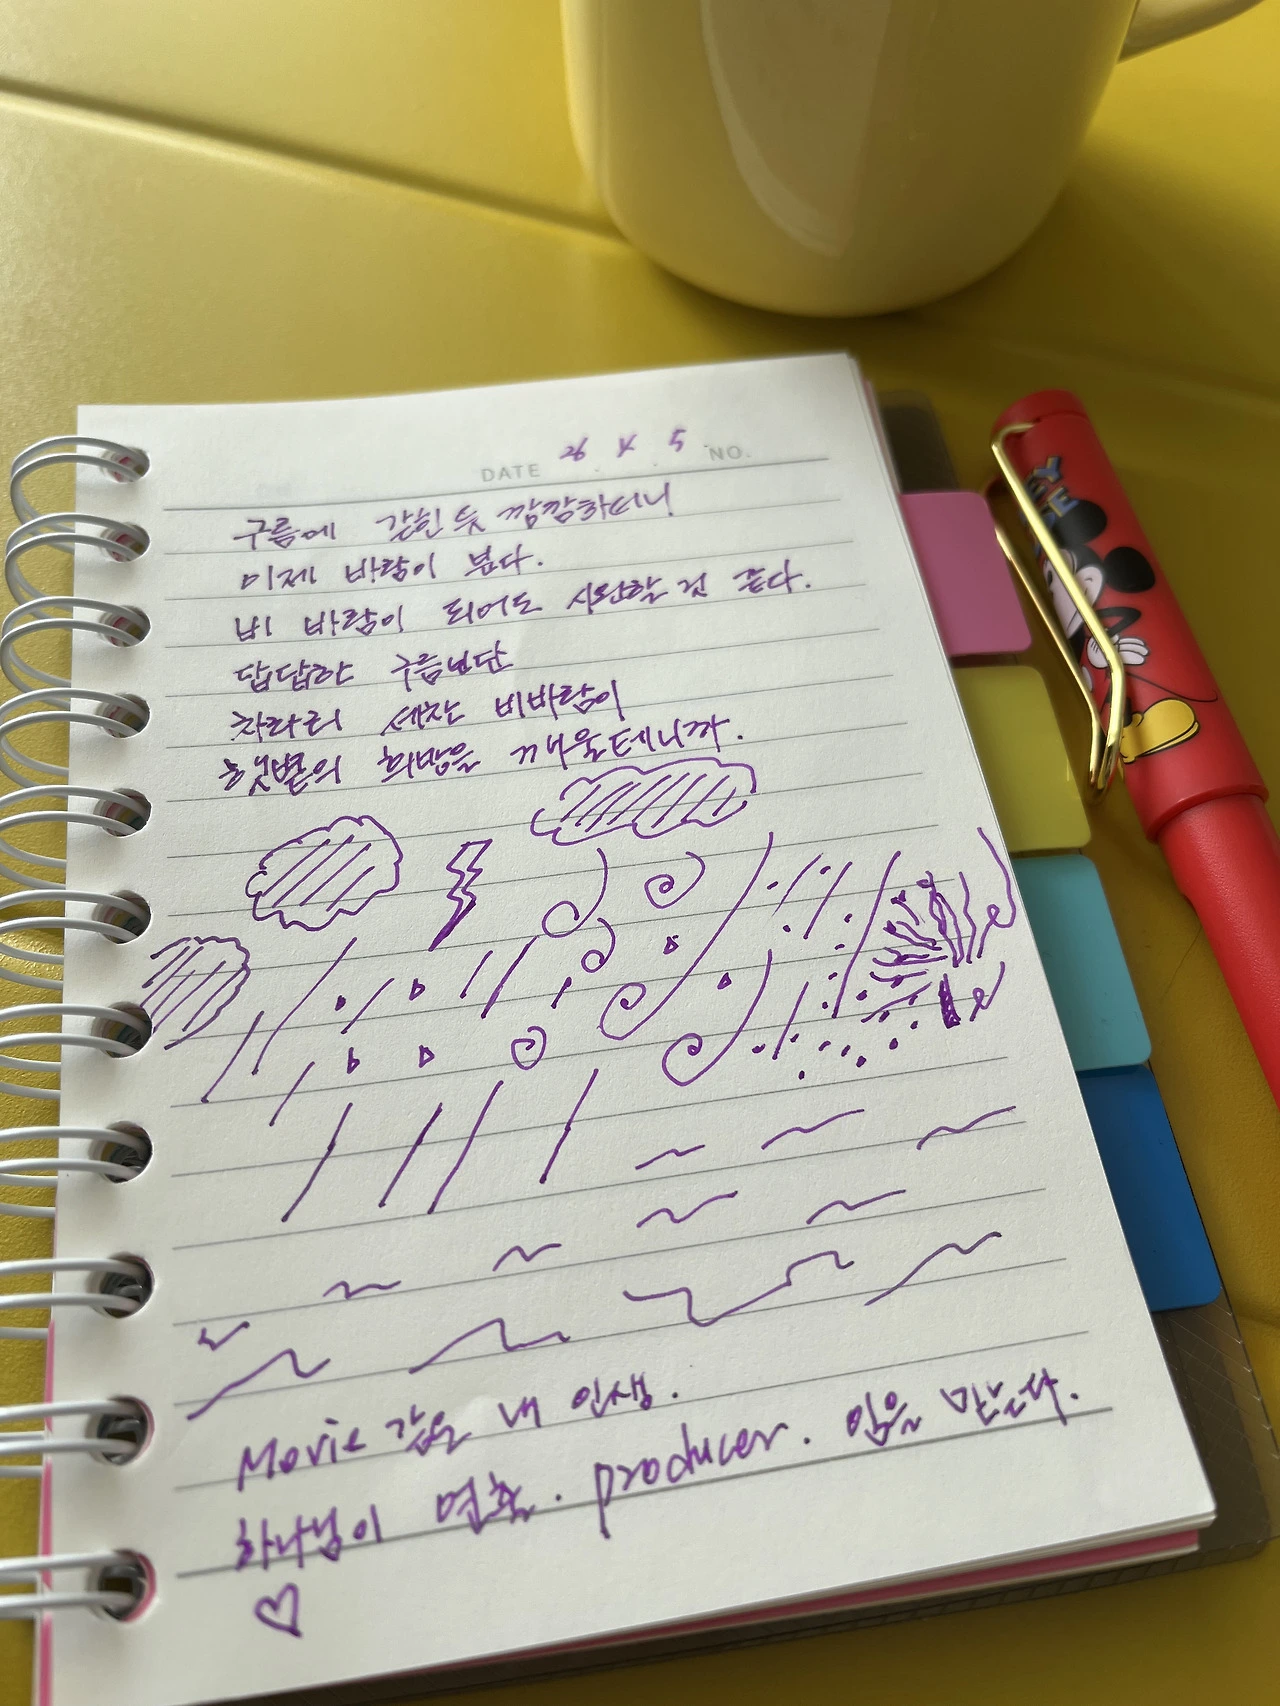 DATE 26 . 4 . 5 NO.
구름에 갇힌 듯 깜깜하더니
이제 바람이 분다.
비 바람이 되어도 시원할 것 같다.
답답한 구름보단
차라리 세찬 비바람이
햇볕의 희망을 깨울테니까.
Movie 같은 내 인생.
하나님이 연출. producer. 임을 믿는다.
♡